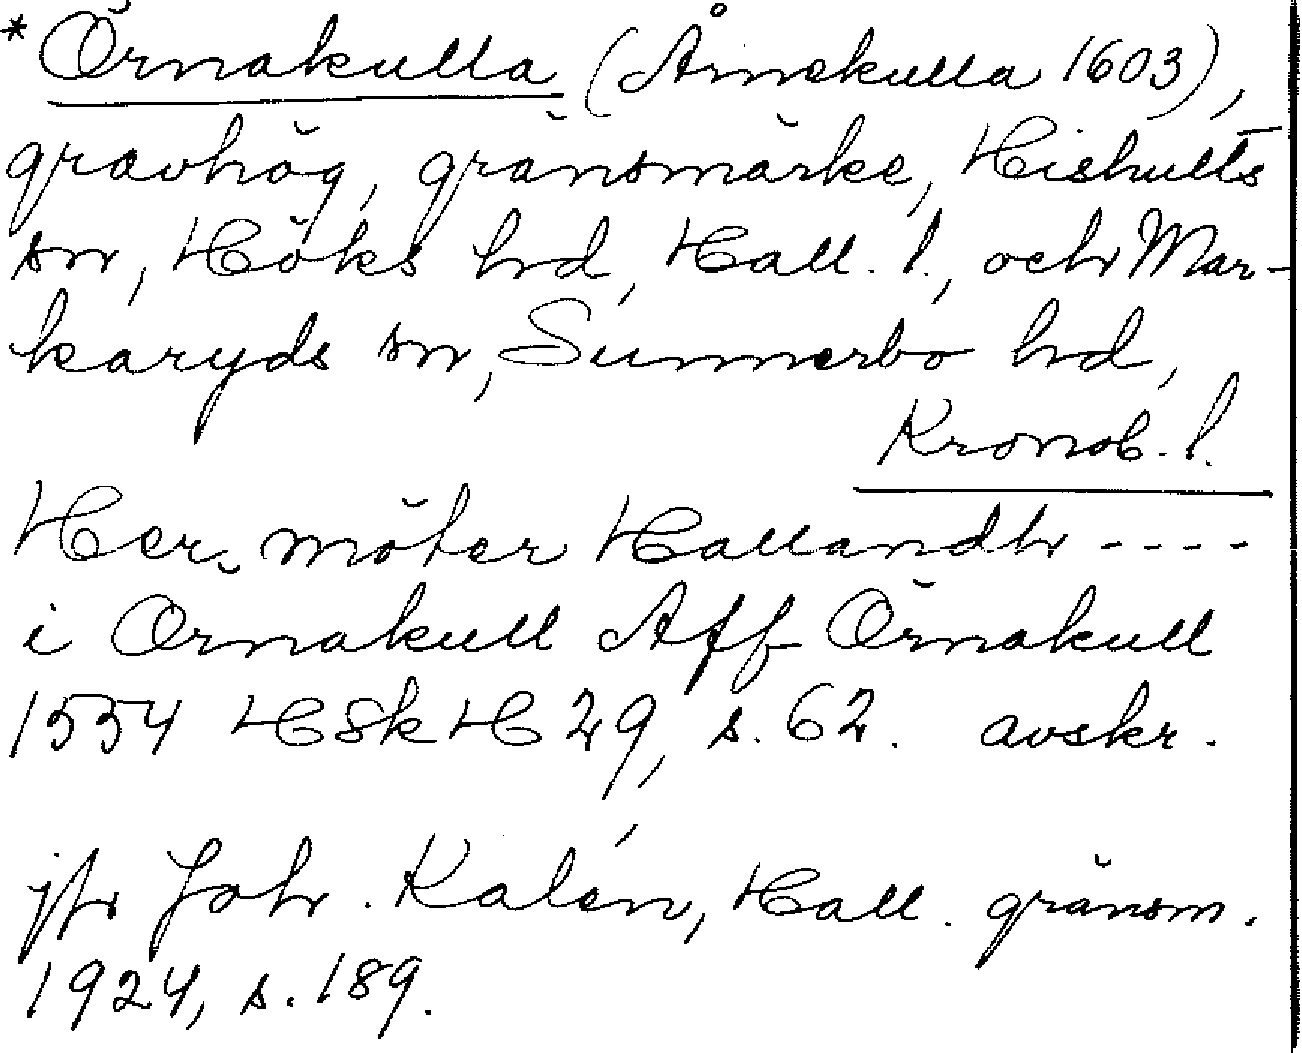 *Örnakulla (Årnekulla 1603),
gravhög, gränsmärke, Hishults
sn, Höks hrd, Hall. l., och Mar-
karyds sn, Sunnerbo hrd,
Kronob. l.
Her möter Hallandh ----
i Ornakull Aff Örnakull
1554 HSkH 29, s. 62. avskr.
jfr Joh. Kalén, Hall. gränsm.
1924, s. 189.